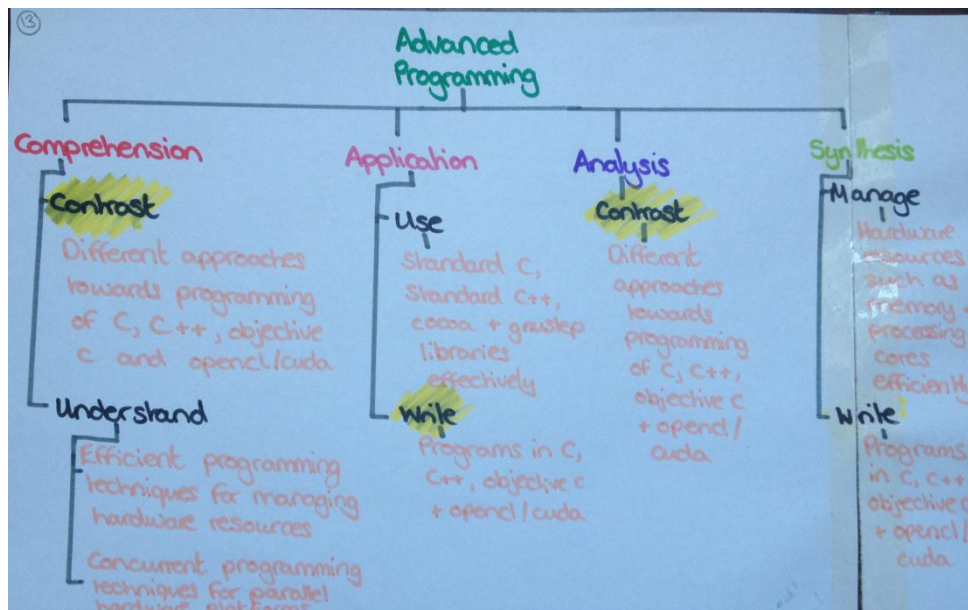 13
Advanced
Programming
Comprehension
Contrast
Different approaches
towards programming
of C, C++, objective
c and opencl/cuda
Understand
Efficient programming
techniques for managing
hardware resources
Concurrent programming
techniques for parallel
hardware platforms
Application
Use
Standard C,
Standard C++,
cocoa + gnustep
libraries
effectively
Write
Programs in C,
C++, objective c
+ opencl/cuda
Analysis
Contrast
Different
approaches
towards
programming
of C, C++,
objective c
+ opencl/
cuda
Synthesis
Manage
Hardware
resources
such as
memory +
processing
cores
efficiently
Write
Programs
in C, C++
objective c
+ opencl/
cuda